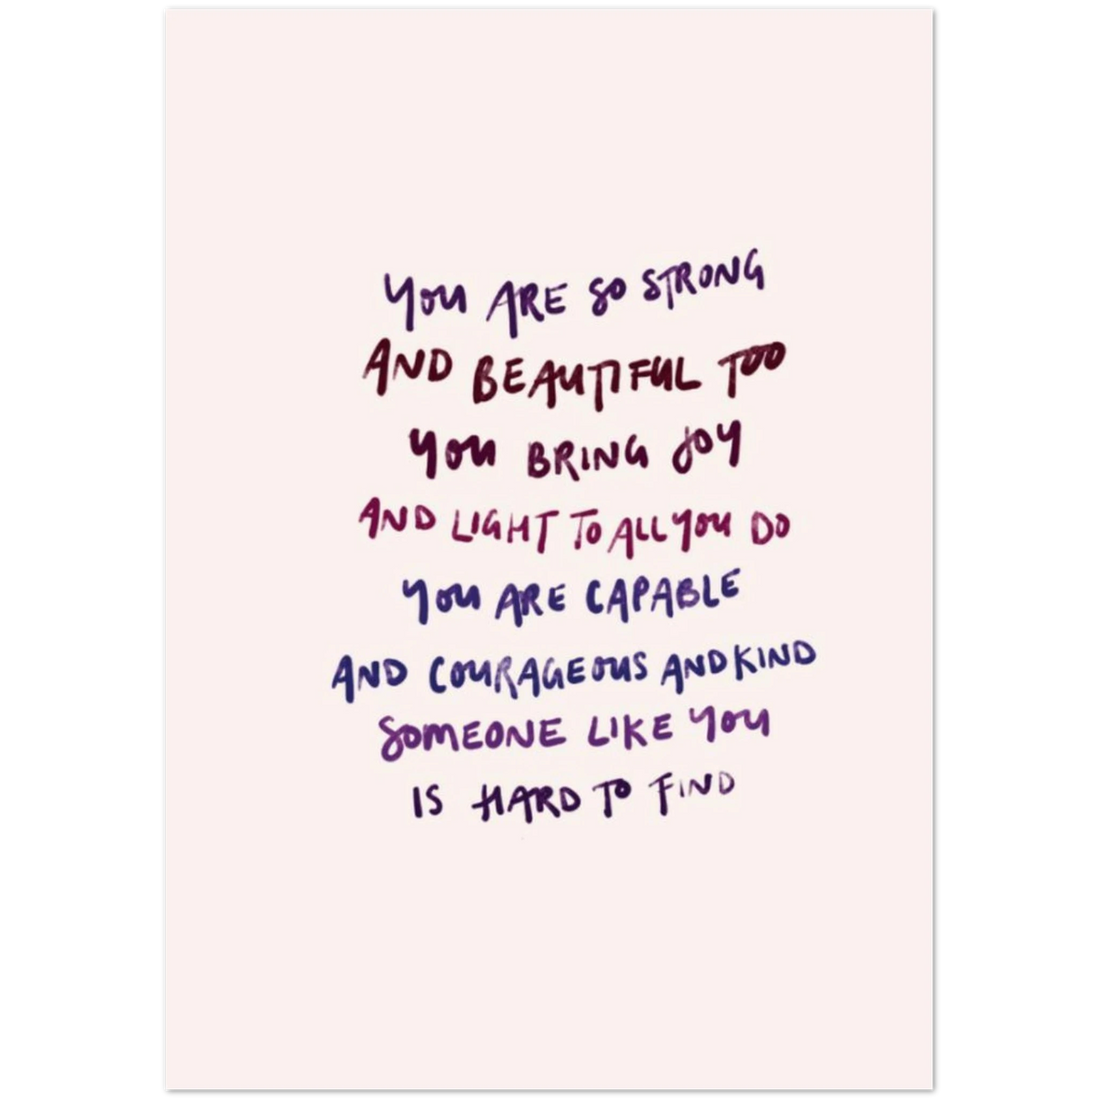 YOU ARE SO STRONG
AND BEAUTIFUL TOO
YOU BRING JOY
AND LIGHT TO ALL YOU DO
YOU ARE CAPABLE
AND COURAGEOUS AND KIND
SOMEONE LIKE YOU
IS HARD TO FIND